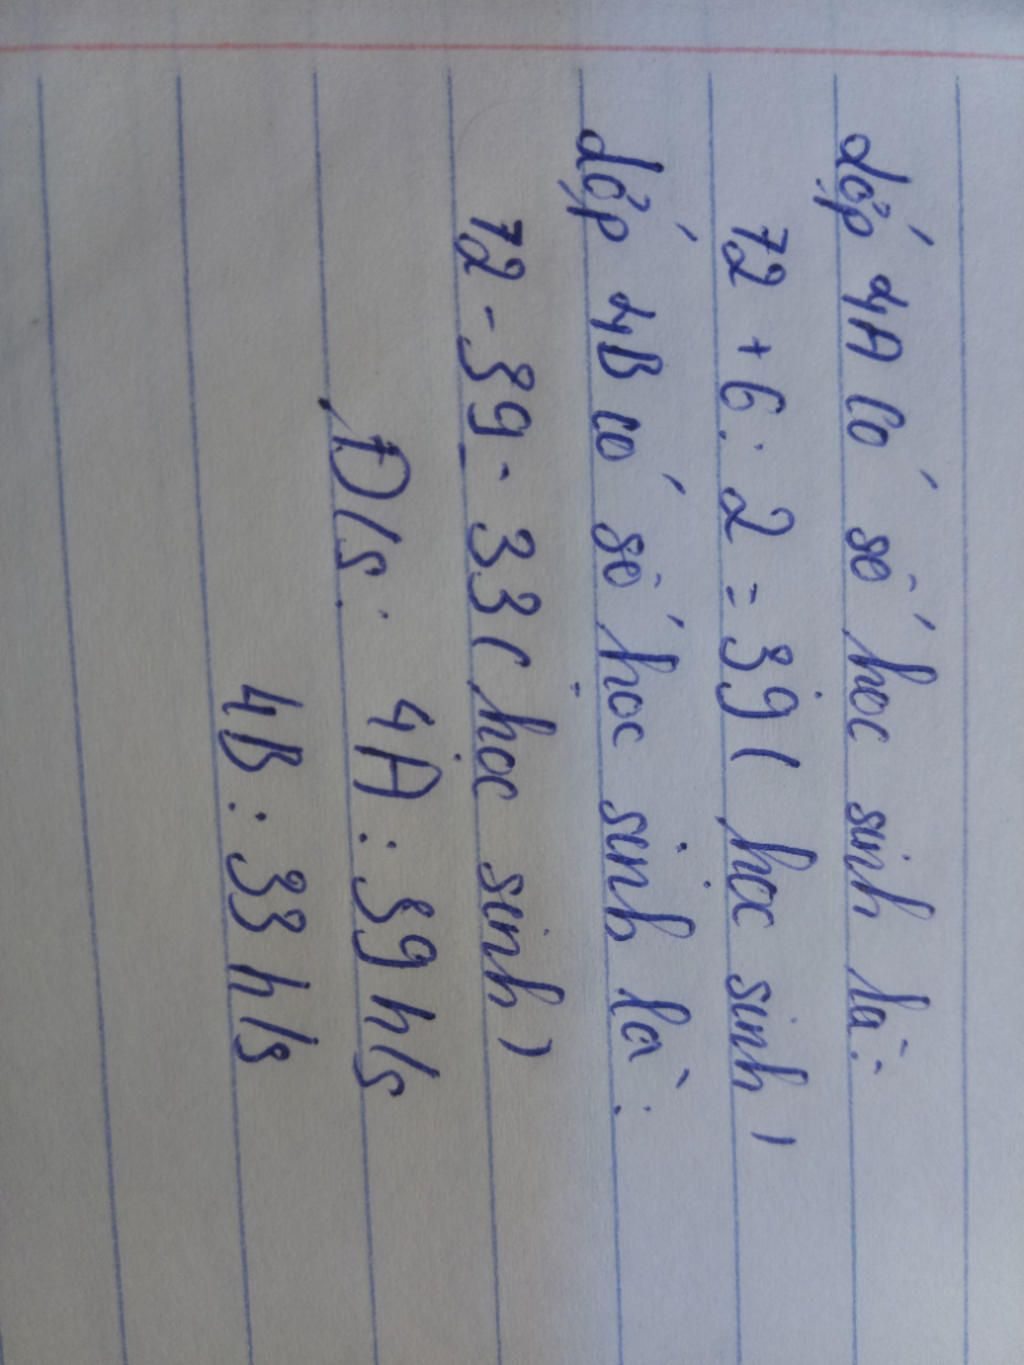 Lớp 4A có số học sinh là:
72 + 6 : 2 = 39 ( học sinh )
Lớp 4B có số học sinh là:
72 - 39 = 33 ( học sinh )
Đ/s: 4A : 39 h/s
4B : 33 h/s